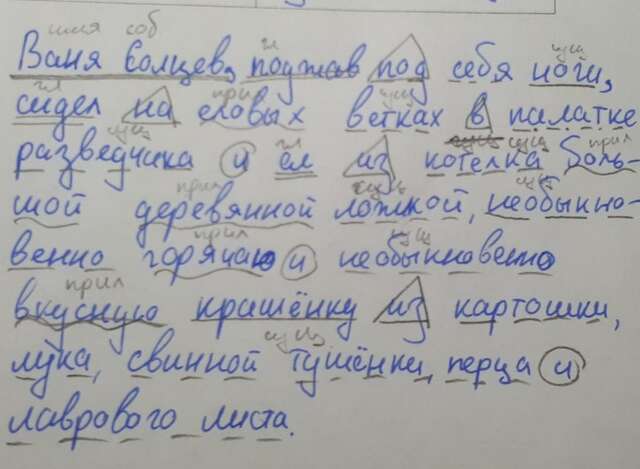 имя соб гл сущ
Ваня Солцев, поджав под себя ноги,
гл прил сущ
сидел на еловых ветках в палатке
сущ гл сущ сущ прил
разведчика и ел из котелка боль-
прил сущ сущ
шой деревянной ложкой, необыкно-
прил сущ
венно горячаю и необыкновенно
прил
вкусную крашёнку из картошки,
сущ
лука, свинной тушёнки, перца и
лаврового листа.